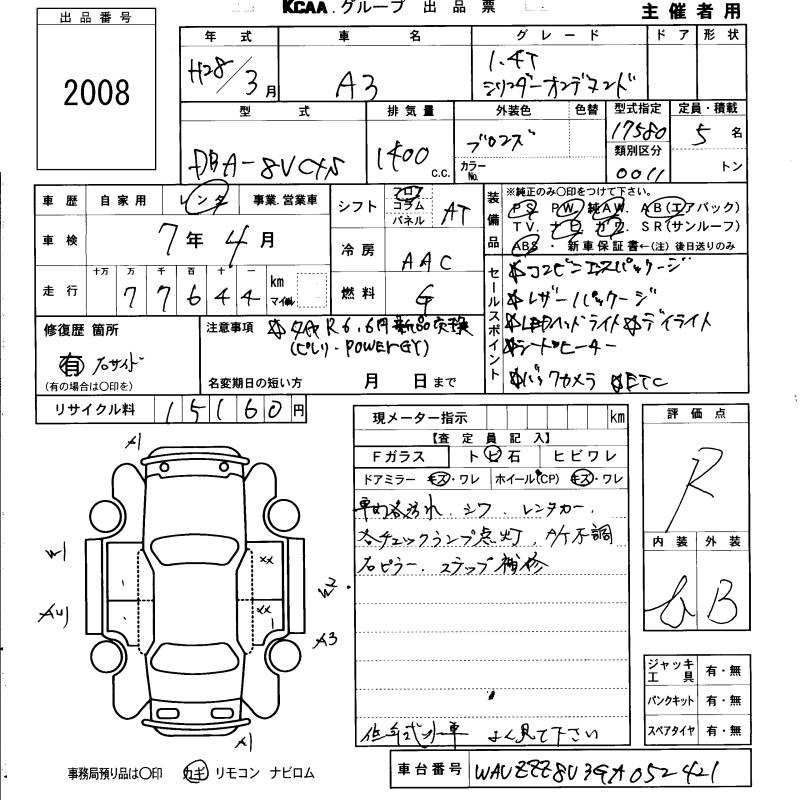 KCAA.グループ 出品票
主催者用
出品番号
2008
年式 車名 グレード ドア 形状
H28/3月 A3 1.4T
シリンダーオンデマンド
型式 排気量 外装色 色替 型式指定 定員・積載
DBA-8VCXS 1400 c.c. ブロンズ カラーNo. 17580 5名
類別区分
0011 トン
車歴 自家用 レンタ 事業.営業車
シフト フロア コラム パネル AT
装備品 ※純正のみ〇印をつけて下さい。
PS PW 純AW. AB(エアバック)
TV. ナビ カワ. SR(サンルーフ)
ABS ・ 新車保証書←(注) 後日送りのみ
車検 7年4月
冷房 AAC
走行 十万 万 千 百 十 一 km マイル
77644
燃料 G
セールスポイント
☆コンビニエンスパッケージ
☆レザーパッケージ
☆LEDヘッドライト ☆デイライト
☆シートヒーター
☆バックカメラ ☆ETC
修復歴 箇所
有 右サイド
(有の場合は〇印を)
注意事項 ☆タイヤR6.6月新品交換
(ピレリ・POWERGY)
名変期日の短い方 月 日まで
リサイクル料 15160円
現メーター指示 km
【査定員記入】
Fガラス トビ石 ヒビワレ
ドアミラー キズ・ワレ ホイール(CP) キズ・ワレ
車内各汚れ.シワ.レンタカー.
各チェックランプ点灯.
右ピラー.ステップ補修
低年式小車 よく見て下さい
評価点
R
内装 外装
B
ジャッキ工具 有・無
パンクキット 有・無
スペアタイヤ 有・無
A1
W1
AU1
XX
XX
W2
A3
A1
事務局預り品は〇印 カギ リモコン ナビロム
車台番号 WAUZZZ8V3GA052421